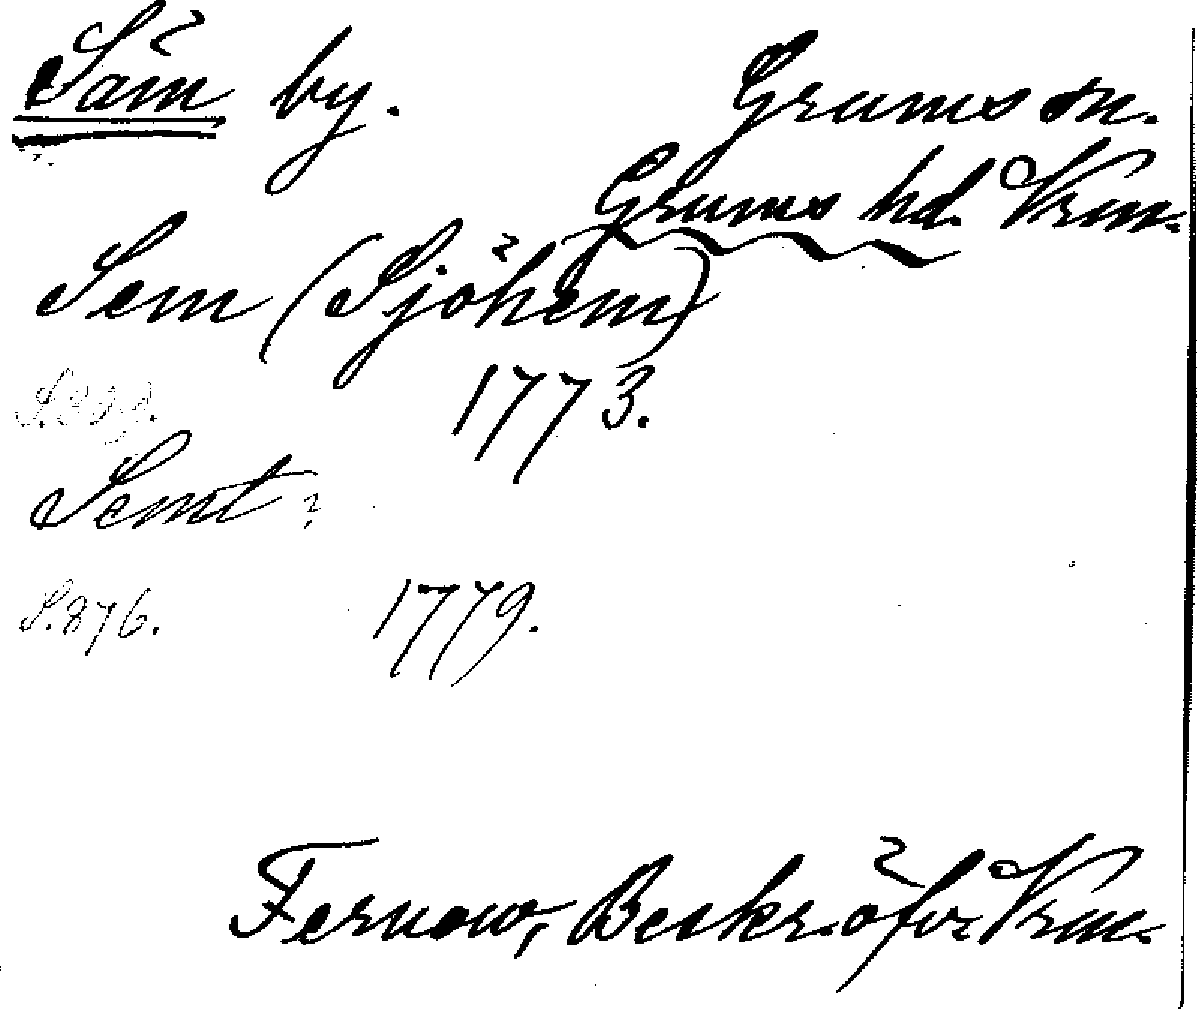 Säm by. Grums sn.
Grums hd. Vrm.
Sem (Sjöhem)
S. 399. 1773.
Semt:
S. 876. 1779.
Fernow, Beskr. öfv. Vrm.